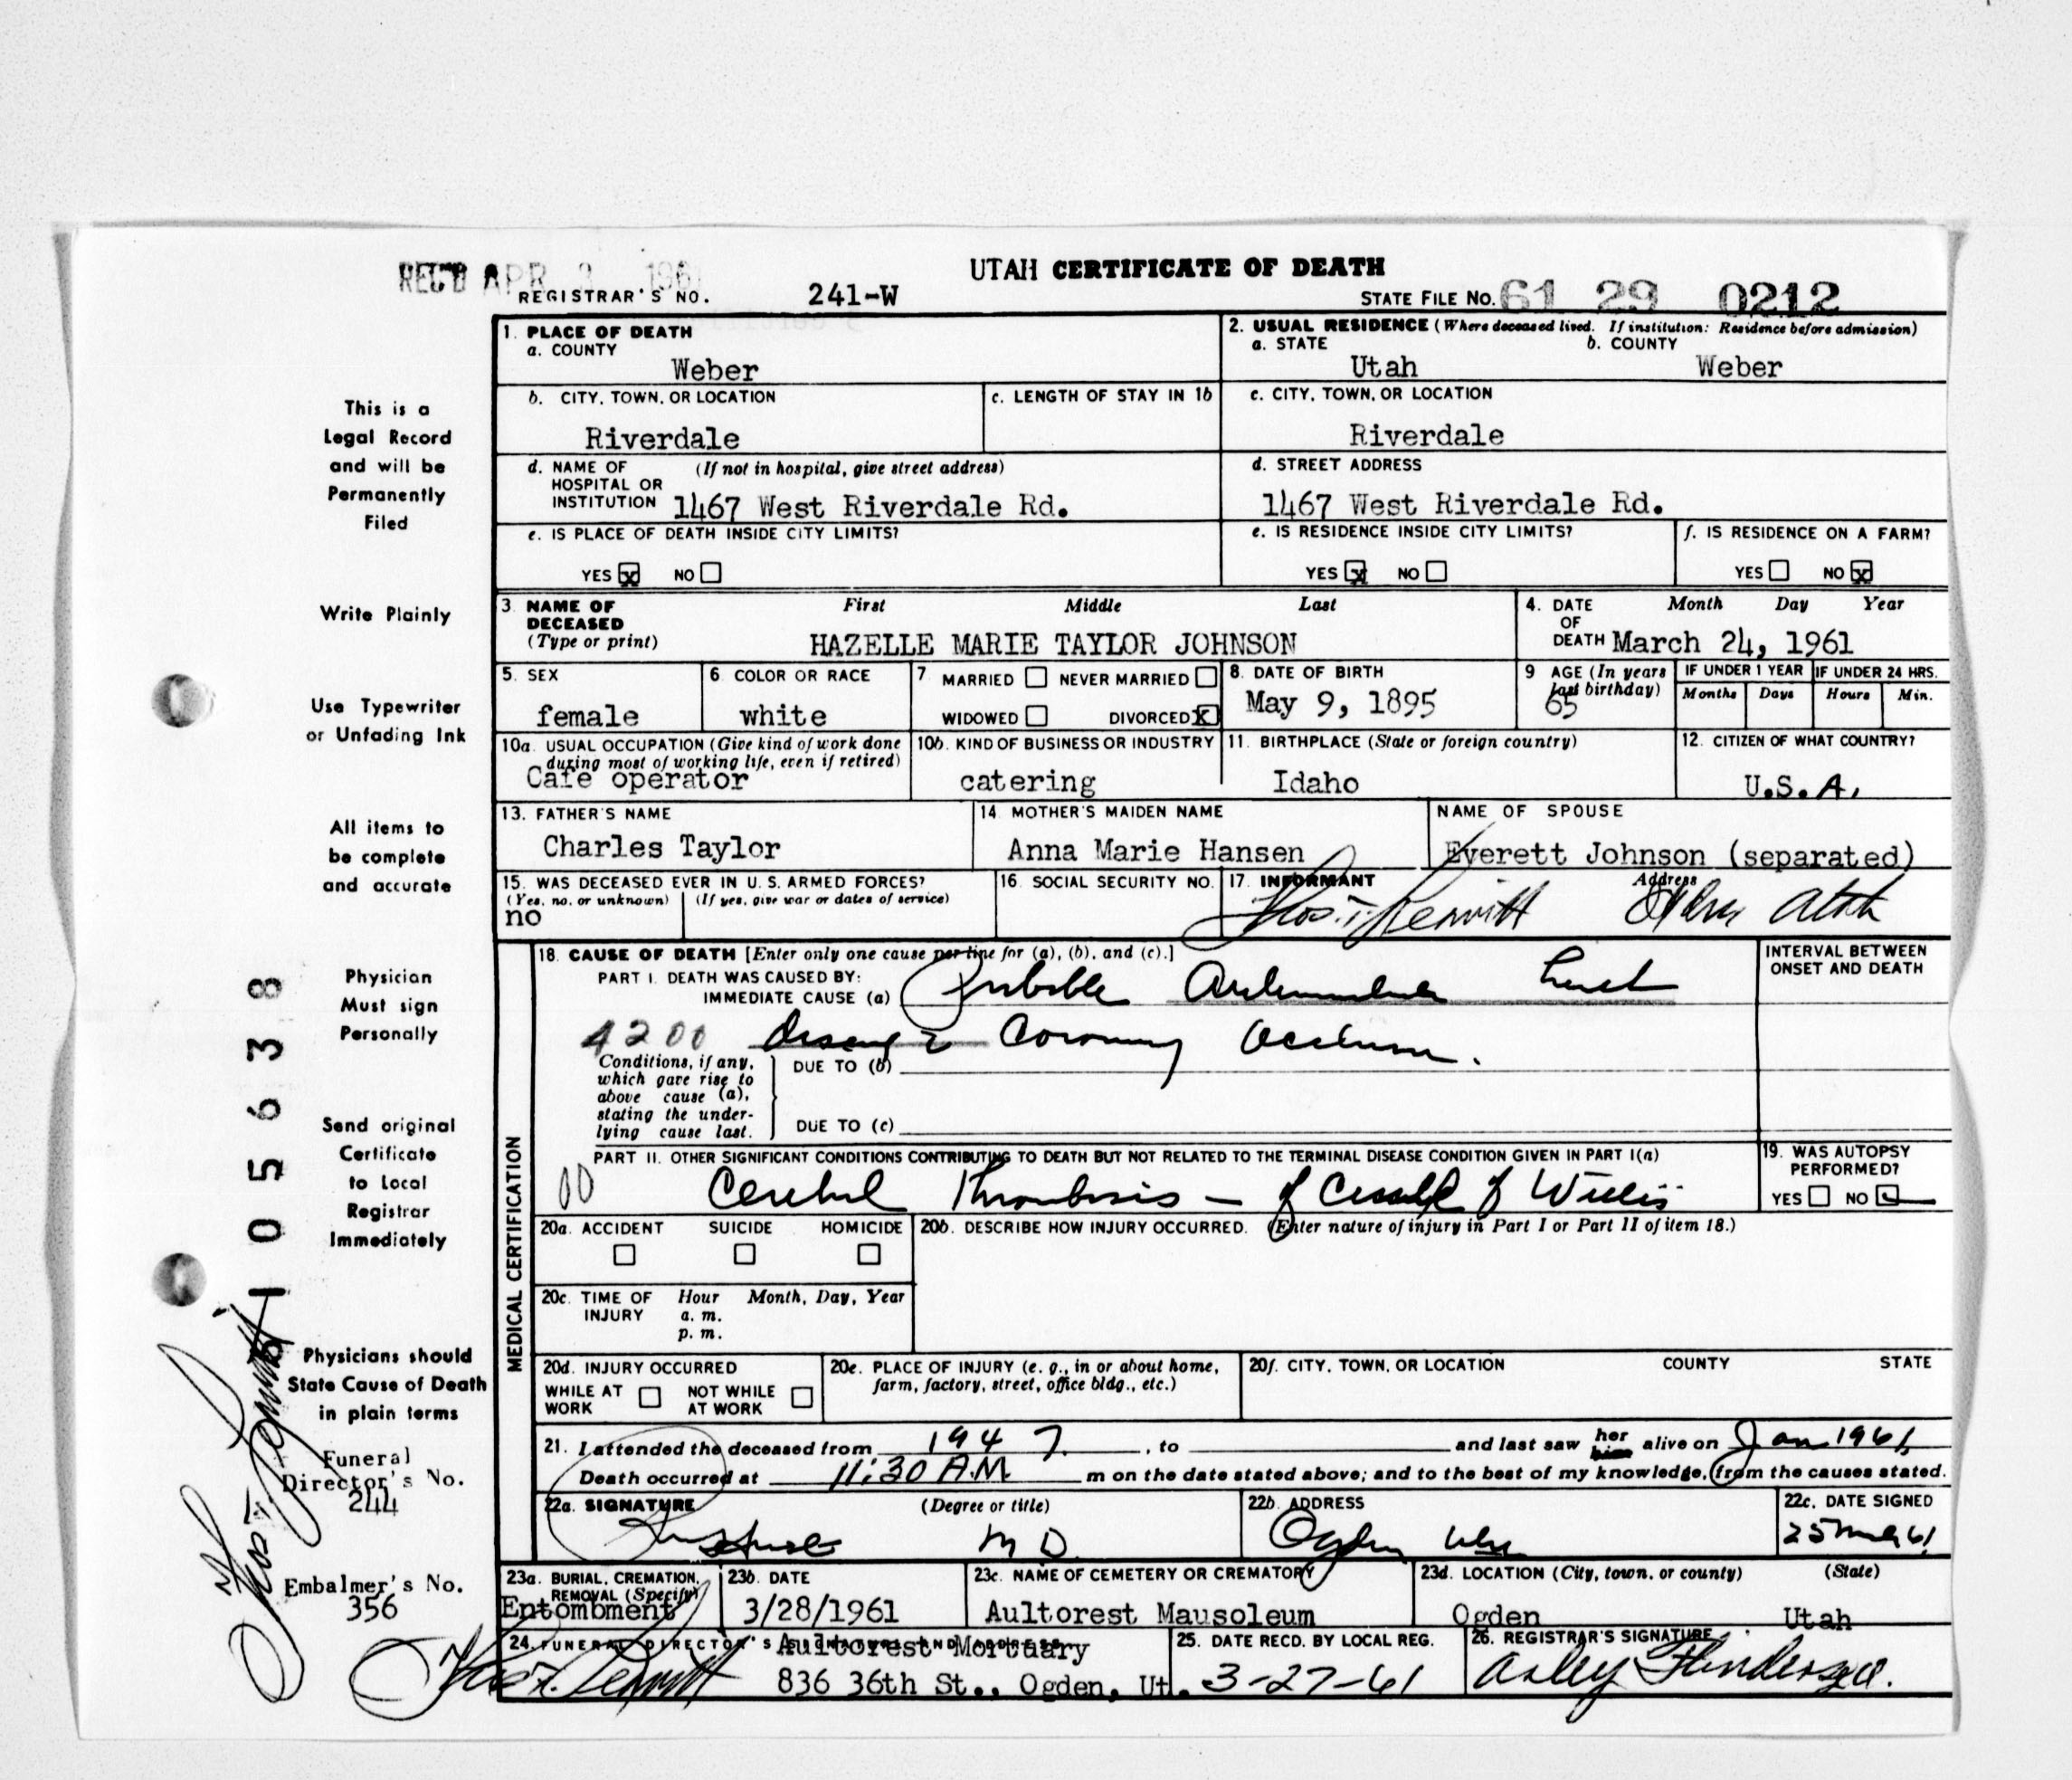 UTAH CERTIFICATE OF DEATH
REC'D APR 3 1961
REGISTRAR'S NO. 241-W
STATE FILE NO. 61 29 0212
1. PLACE OF DEATH
a. COUNTY
Weber
2. USUAL RESIDENCE (Where deceased lived. If institution: Residence before admission)
a. STATE b. COUNTY
Utah Weber
b. CITY, TOWN, OR LOCATION
Riverdale
c. LENGTH OF STAY IN 1b
c. CITY, TOWN, OR LOCATION
Riverdale
d. NAME OF (If not in hospital, give street address)
HOSPITAL OR
INSTITUTION 1467 West Riverdale Rd.
d. STREET ADDRESS
1467 West Riverdale Rd.
e. IS PLACE OF DEATH INSIDE CITY LIMITS?
YES x NO
e. IS RESIDENCE INSIDE CITY LIMITS?
YES x NO
f. IS RESIDENCE ON A FARM?
YES NO x
3. NAME OF DECEASED (Type or print)
First Middle Last
HAZELLE MARIE TAYLOR JOHNSON
4. DATE OF DEATH
Month Day Year
March 24, 1961
5. SEX
female
6. COLOR OR RACE
white
7. MARRIED NEVER MARRIED
WIDOWED DIVORCED X
8. DATE OF BIRTH
May 9, 1895
9. AGE (In years last birthday)
65
IF UNDER 1 YEAR IF UNDER 24 HRS.
Months Days Hours Min.
10a. USUAL OCCUPATION (Give kind of work done
during most of working life, even if retired)
Cafe operator
10b. KIND OF BUSINESS OR INDUSTRY
catering
11. BIRTHPLACE (State or foreign country)
Idaho
12. CITIZEN OF WHAT COUNTRY?
U.S.A.
13. FATHER'S NAME
Charles Taylor
14. MOTHER'S MAIDEN NAME
Anna Marie Hansen
NAME OF SPOUSE
Everett Johnson (separated)
15. WAS DECEASED EVER IN U.S. ARMED FORCES?
(Yes, no, or unknown) (If yes, give war or dates of service)
no
16. SOCIAL SECURITY NO.
17. INFORMANT Address
18. CAUSE OF DEATH [Enter only one cause per line for (a), (b), and (c).]
PART I. DEATH WAS CAUSED BY:
IMMEDIATE CAUSE (a) Probable
4200 disease Coronary Occlusion.
Conditions, if any,
which gave rise to
above cause (a),
stating the under-
lying cause last.
DUE TO (b)
DUE TO (c)
INTERVAL BETWEEN
ONSET AND DEATH
PART II. OTHER SIGNIFICANT CONDITIONS CONTRIBUTING TO DEATH BUT NOT RELATED TO THE TERMINAL DISEASE CONDITION GIVEN IN PART I(a)
Cerebral Thrombosis - of Circle of Willis
19. WAS AUTOPSY
PERFORMED?
YES NO
20a. ACCIDENT SUICIDE HOMICIDE
20b. DESCRIBE HOW INJURY OCCURRED. (Enter nature of injury in Part I or Part II of item 18.)
20c. TIME OF INJURY Hour Month, Day, Year
a. m.
p. m.
20d. INJURY OCCURRED
WHILE AT WORK NOT WHILE AT WORK
20e. PLACE OF INJURY (e. g., in or about home,
farm, factory, street, office bldg., etc.)
20f. CITY, TOWN, OR LOCATION COUNTY STATE
21. I attended the deceased from 1947, to and last saw her him alive on Jan 1961,
Death occurred at 11:30 A.M. m on the date stated above; and to the best of my knowledge, from the causes stated.
22a. SIGNATURE (Degree or title)
M D
22b. ADDRESS
Ogden
22c. DATE SIGNED
25 Mar 61
23a. BURIAL, CREMATION,
REMOVAL (Specify)
Entombment
23b. DATE
3/28/1961
23c. NAME OF CEMETERY OR CREMATORY
Aultorest Mausoleum
23d. LOCATION (City, town, or county) (State)
Ogden Utah
24. FUNERAL DIRECTOR'S SIGNATURE AND ADDRESS
Aultorest Mortuary
836 36th St., Ogden, Ut.
25. DATE RECD. BY LOCAL REG.
3-27-61
26. REGISTRAR'S SIGNATURE
MEDICAL CERTIFICATION
This is a
Legal Record
and will be
Permanently
Filed
Write Plainly
Use Typewriter
or Unfading Ink
All items to
be complete
and accurate
Physician
Must sign
Personally
Send original
Certificate
to Local
Registrar
Immediately
Physicians should
State Cause of Death
in plain terms
Funeral
Director's No.
244
Embalmer's No.
356
105638